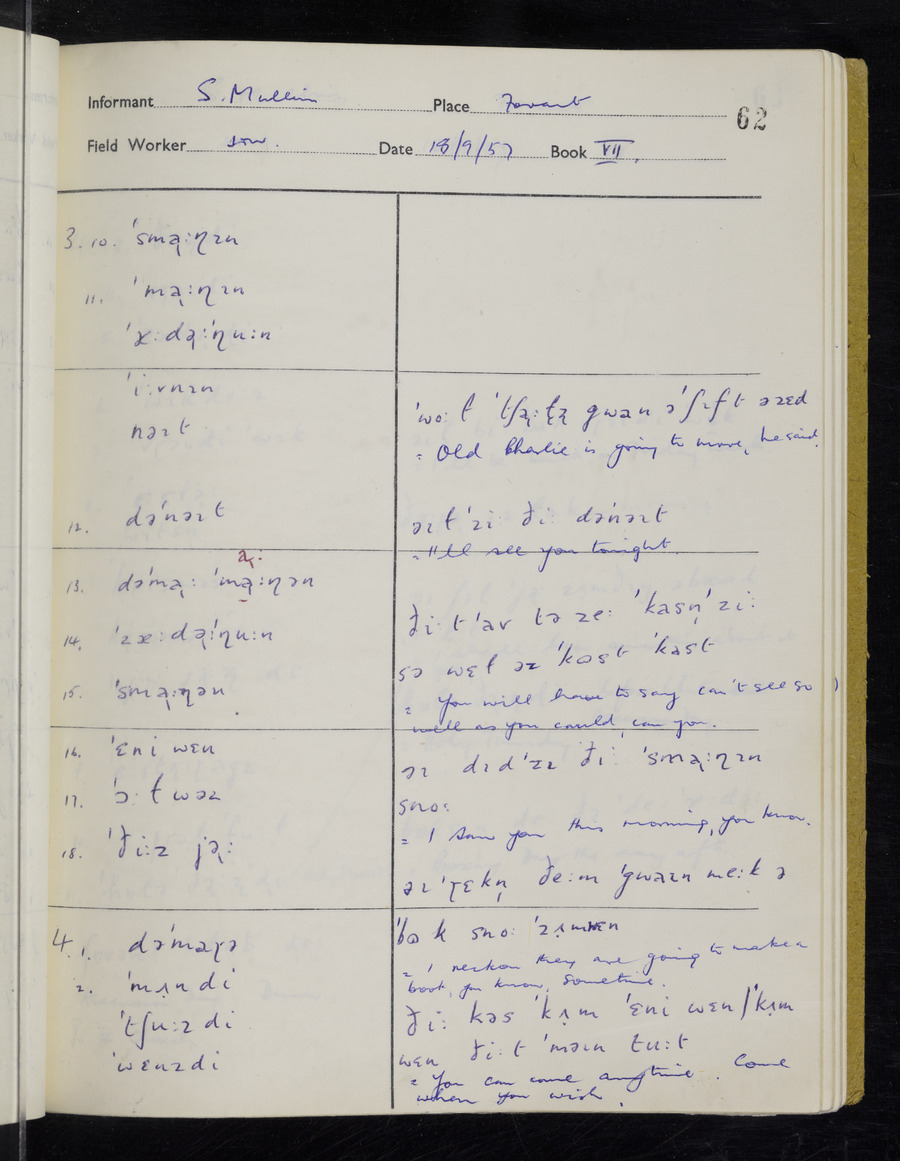 Informant S. Mullins Place Fovant
62
Field Worker Date 18/9/57 Book VII.
3. 10. ˈsmə̢:ɳɪn
11. ˈmə̢:ɳɪn
ˈi:vnɪn
nəɪt
12. dəˈnəɪt
13. dəˈmə̢: ˈmə̢:ɳən
ə̢:
14. ˈzæ:də̢ˈɳu:n
15. ˈsmə̢:ɳən
16. ˈɛni wɛn
17. ˈɔ:ɫwəz
18. ˈði:z jə̢:
4. 1. dəˈmaɽə
2. ˈmʌ̢ndi
ˈtʃu:zdi
ˈwɛnzdi
= Old Charlie is going to move, he said.
əɪɫ ˈzi ði: dəˈnəɪt
= I'll see you tonight.
ði:ɫ ˈav tə ze: ˈkasn̩ ˈzi:
sə wɛɫ əz ˈkəst ˈkast
= You will have to say can't see so
well as you could, can you.
əɪ dɪdˈzɪ ði: ˈsmə̢:ɳɪn
sno:
= I saw you this morning, you know.
əɪ ˈɽɛkn̩ ðe:m ˈgwaɪn me:k ə
ˈbʊk sno: ˈzʌ̢mwɛn
= I reckon they are going to make a
book, you know, sometime.
ði: kəs ˈkʌ̢m ˈɛni wɛn / ˈkʌ̢m
wɛn ði:t ˈməɪn tu:t
= You can come anytime. Come
when you wish.